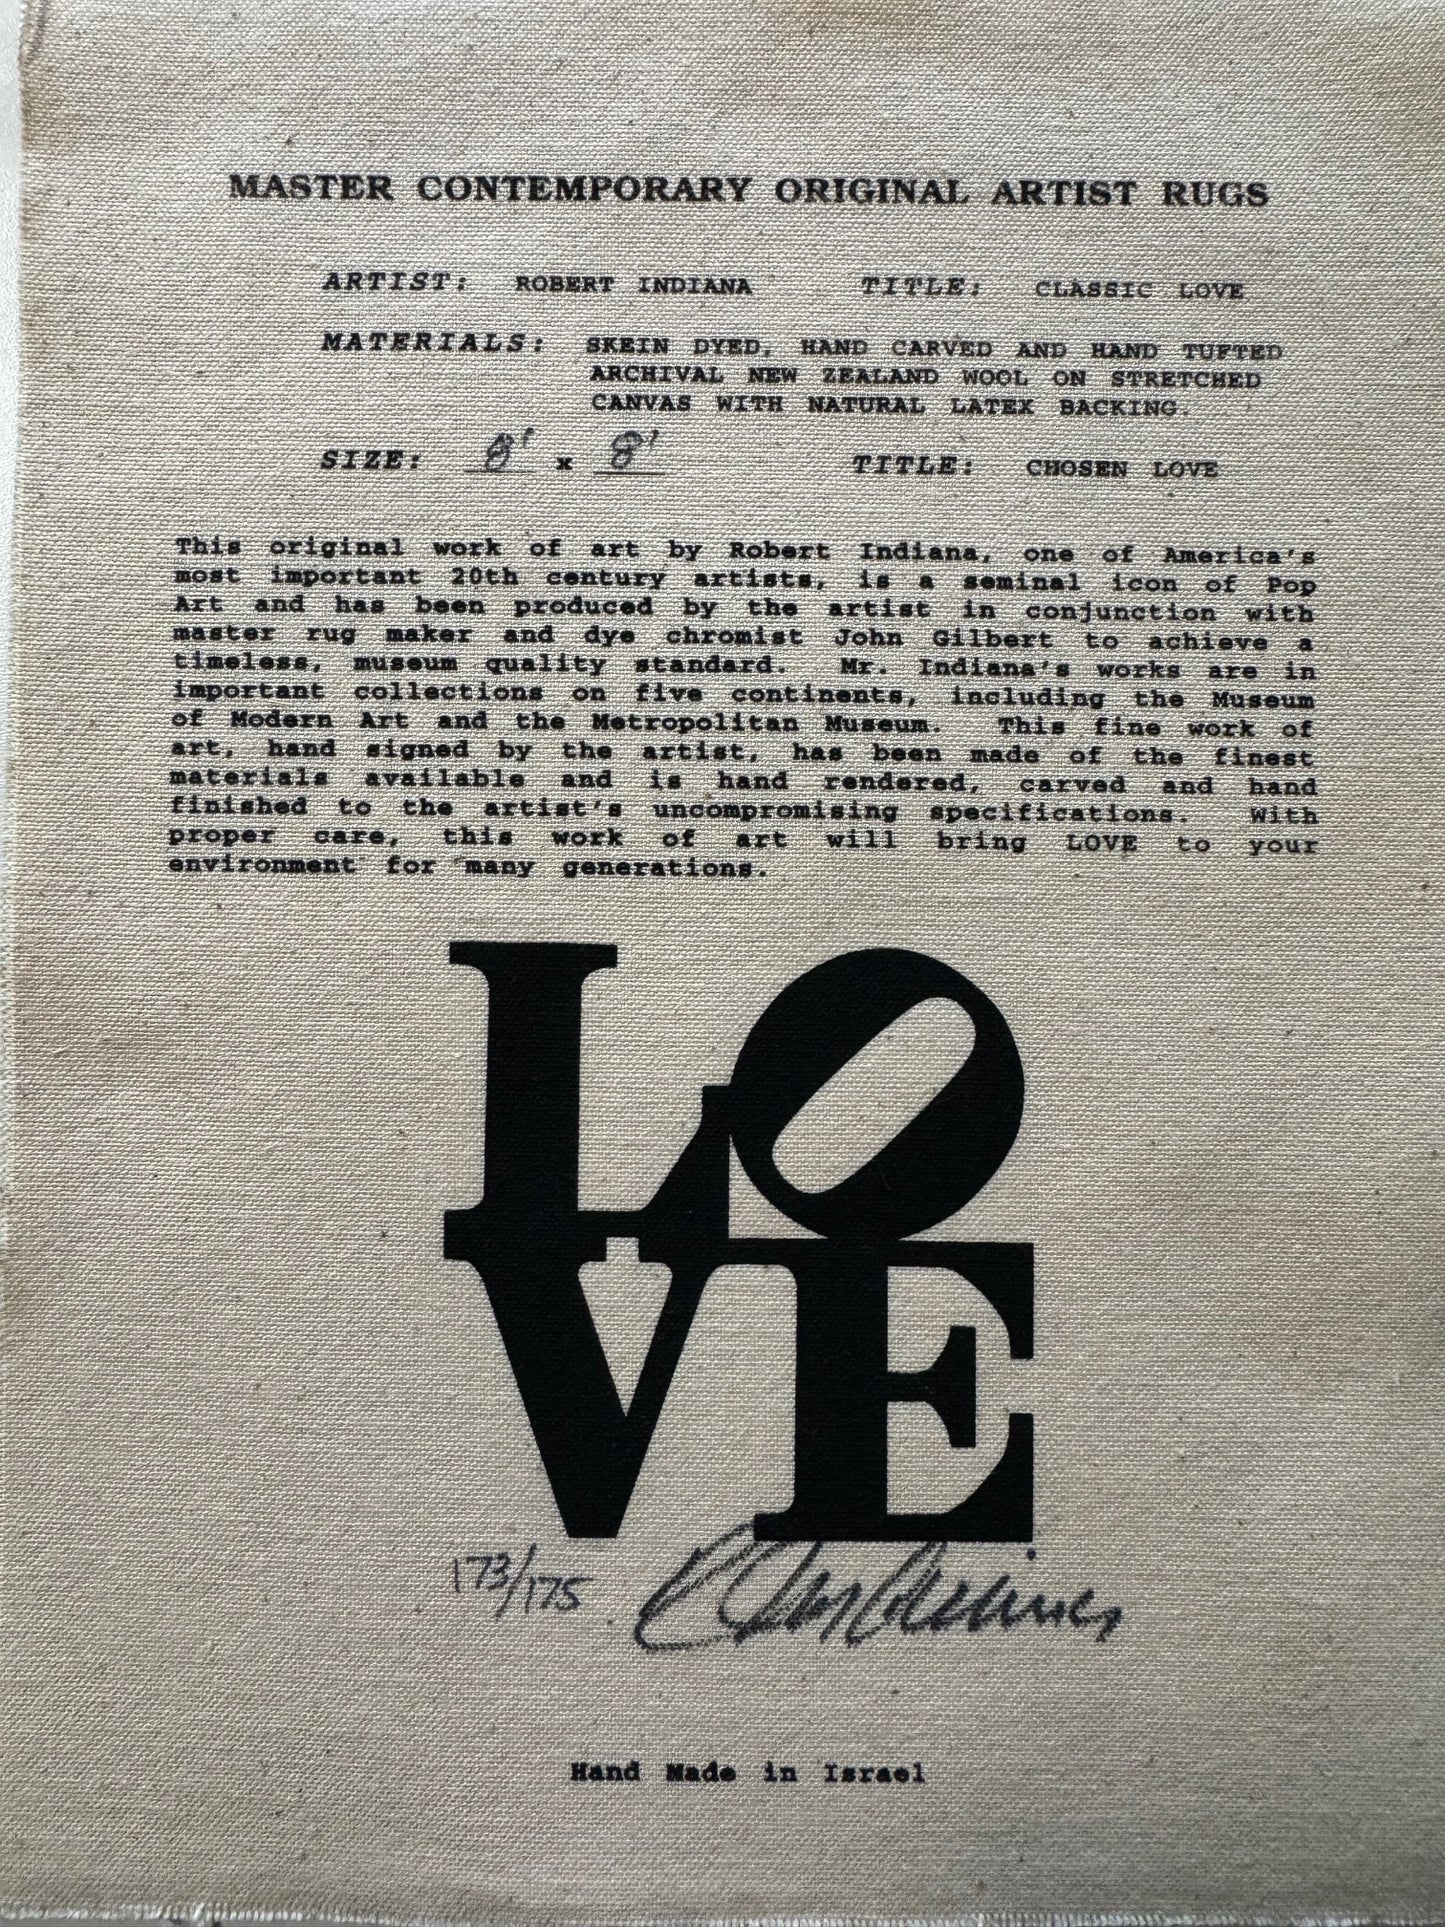 MASTER CONTEMPORARY ORIGINAL ARTIST RUGS
ARTIST: ROBERT INDIANA TITLE: CLASSIC LOVE
MATERIALS: SKEIN DYED, HAND CARVED AND HAND TUFTED
ARCHIVAL NEW ZEALAND WOOL ON STRETCHED
CANVAS WITH NATURAL LATEX BACKING.
SIZE: 8' x 8' TITLE: CHOSEN LOVE
This original work of art by Robert Indiana, one of America's
most important 20th century artists, is a seminal icon of Pop
Art and has been produced by the artist in conjunction with
master rug maker and dye chromist John Gilbert to achieve a
timeless, museum quality standard. Mr. Indiana's works are in
important collections on five continents, including the Museum
of Modern Art and the Metropolitan Museum. This fine work of
art, hand signed by the artist, has been made of the finest
materials available and is hand rendered, carved and hand
finished to the artist's uncompromising specifications. With
proper care, this work of art will bring LOVE to your
environment for many generations.
LO
VE
173/175
Hand Made in Israel